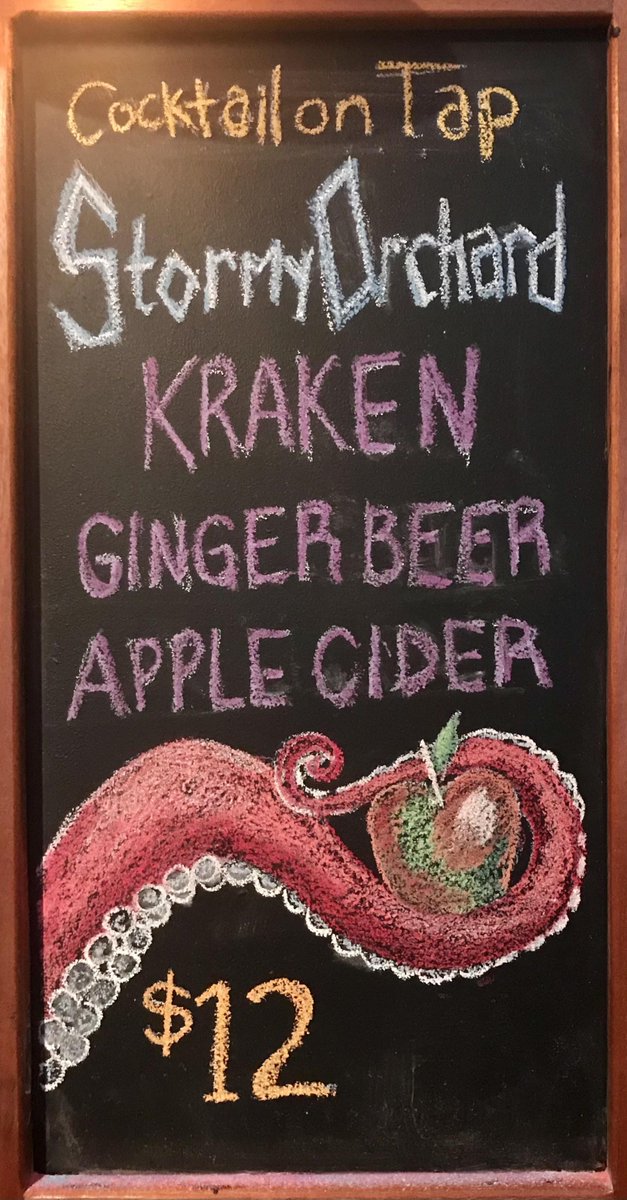 Cocktail on Tap
Stormy Orchard
KRAKEN
GINGER BEER
APPLE CIDER
$12